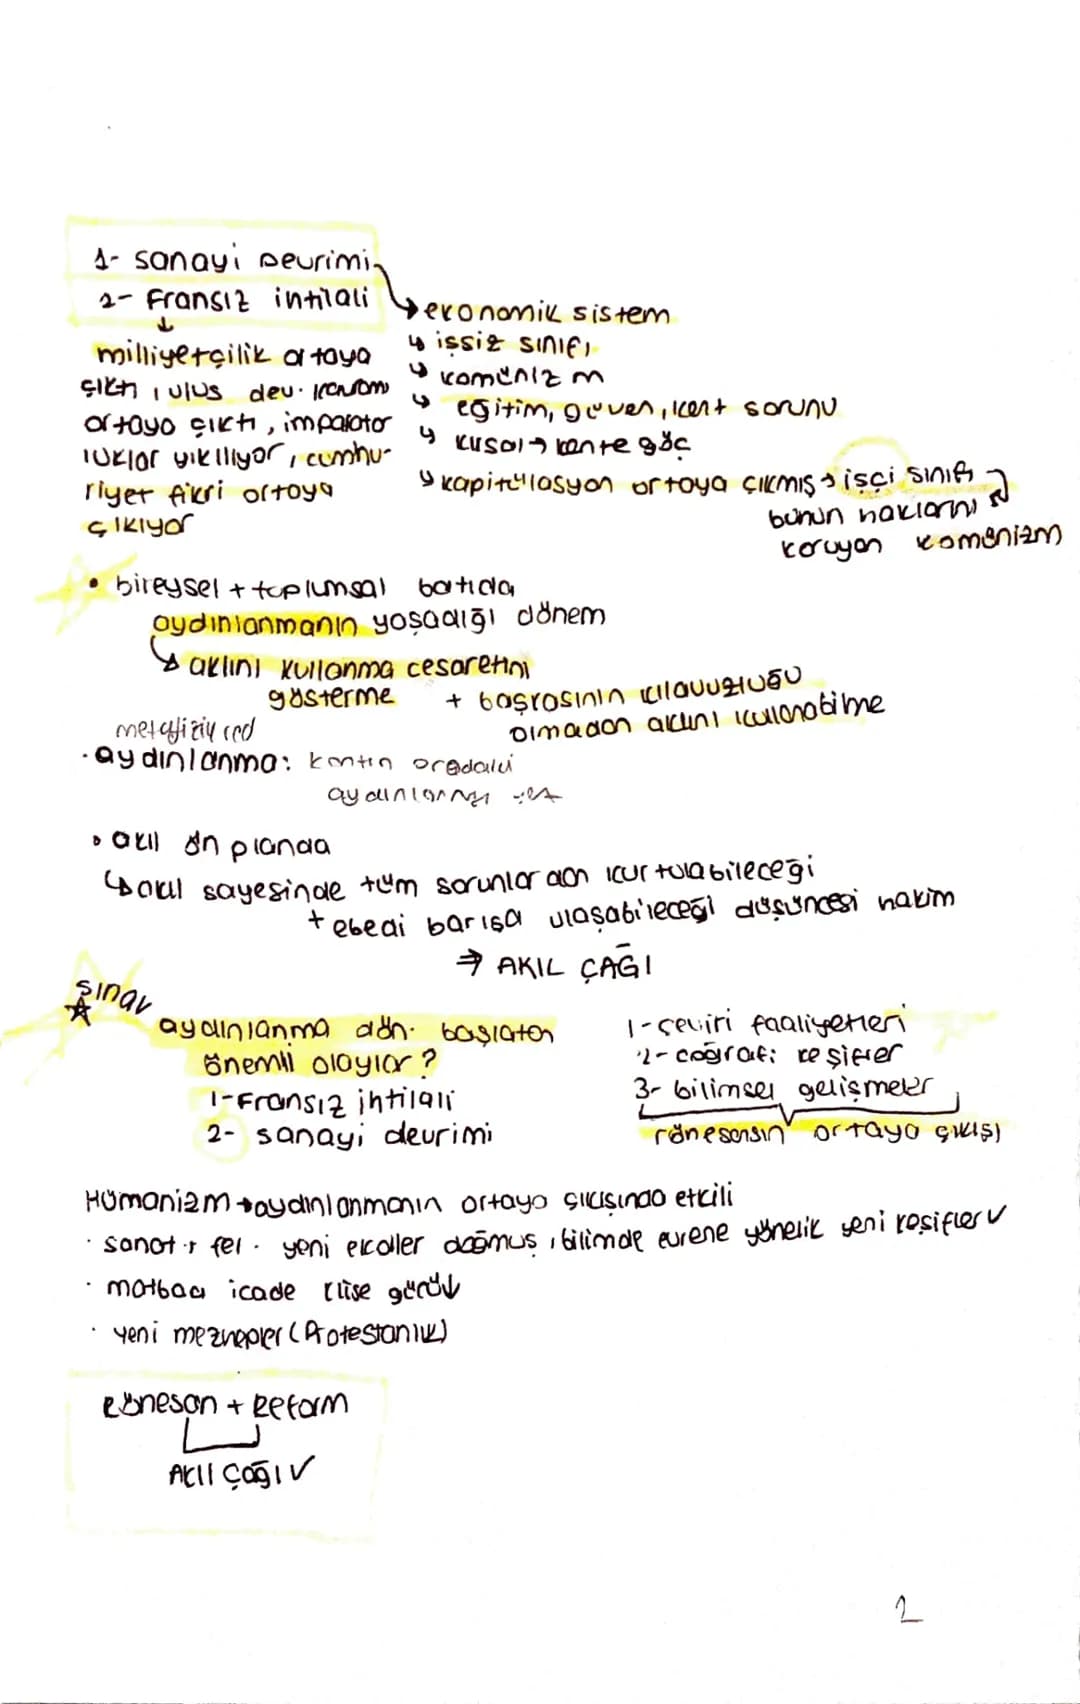 1- sanayi Devrimi
2- Fransız intilali
↓
milliyetçilik ortaya
çıktı, ulus dev. kavramı
ortaya çıktı, imparator
luklar yıkılıyor, cumhu-
riyet fikri ortaya
çıkıyor
↳ ekonomik sistem
↳ işsiz sınıfı
↳ komünizm
↳ eğitim, güven, kent sorunu
↳ kırsal → kente göç
↳ kapitülasyon ortaya çıkmış → işçi sınıfı
bunun haklarını
koruyan komünizm
• bireysel + toplumsal batıda
aydınlanmanın yaşadığı dönem
↳ aklını kullanma cesaretini
gösterme + başkasının kılavuzluğu
olmadan aklını kullanabilme
metafiziği red
• aydınlanma: kantın oradaki
aydınlanma
• akıl ön planda
↳ akıl sayesinde tüm sorunlardan kurtulabileceği
+ ebedi barışa ulaşabileceği düşüncesi hakim
⇒ AKIL ÇAĞI
sınav
☆
aydınlanma dön. başlatan
önemli olaylar?
1- Fransız ihtilali
2- sanayi devrimi
1- çeviri faaliyetleri
2- coğrafi keşifler
3- bilimsel gelişmeler
rönesansın ortaya çıkışı
Hümanizm → aydınlanmanın ortaya çıkışında etkili
• sanat + fel. yeni ekoller doğmuş, bilimde evrene yönelik yeni keşifler ✓
• matbaa icade klise gücü↓
• yeni mezhepler (Protestanlık)
Rönesan + Reform
Akıl Çağı ✓
2